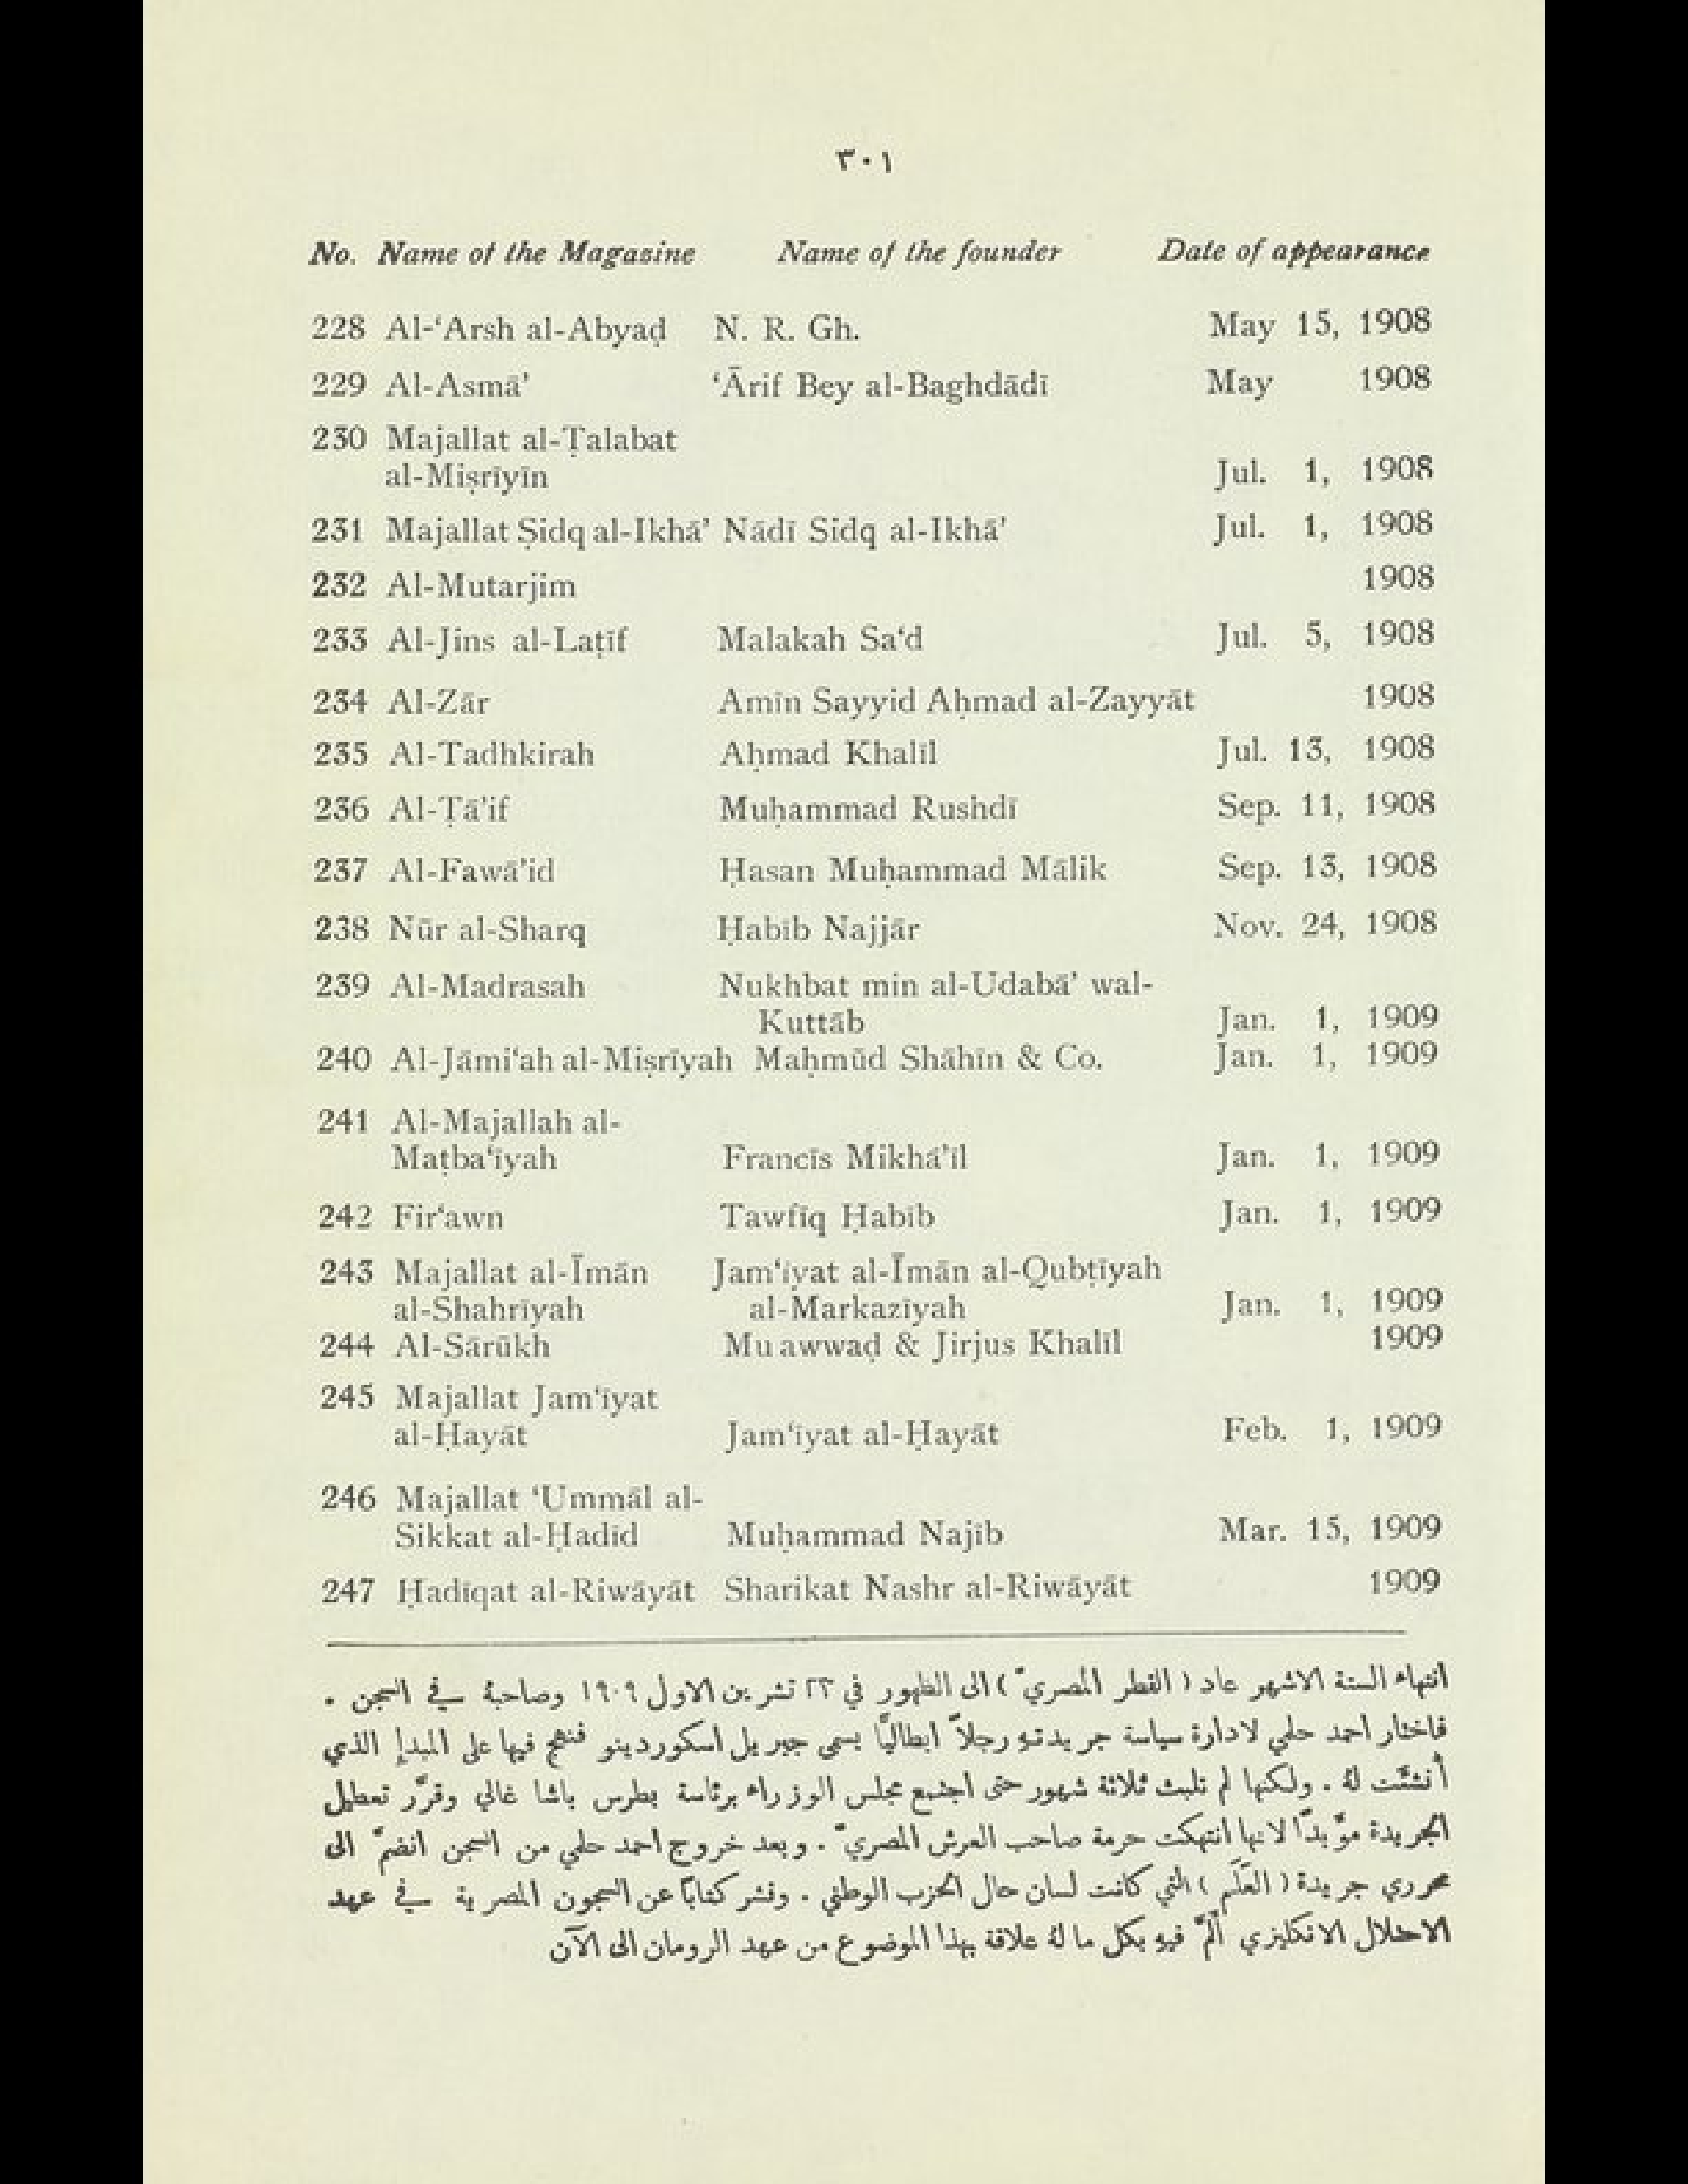 ٣٠١
No. Name of the Magazine Name of the founder Date of appearance
228 Al-‘Arsh al-Abyaḍ N. R. Gh. May 15, 1908
229 Al-Asmā’ ‘Ārif Bey al-Baghdādī May 1908
230 Majallat al-Ṭalabat
al-Miṣrīyīn Jul. 1, 1908
231 Majallat Ṣidq al-Ikhā’ Nādī Sidq al-Ikhā’ Jul. 1, 1908
232 Al-Mutarjim 1908
233 Al-Jins al-Laṭīf Malakah Sa‘d Jul. 5, 1908
234 Al-Zār Amīn Sayyid Aḥmad al-Zayyāt 1908
235 Al-Tadhkirah Aḥmad Khalīl Jul. 13, 1908
236 Al-Ṭā’if Muḥammad Rushdī Sep. 11, 1908
237 Al-Fawā’id Ḥasan Muḥammad Mālik Sep. 13, 1908
238 Nūr al-Sharq Ḥabīb Najjār Nov. 24, 1908
239 Al-Madrasah Nukhbat min al-Udabā’ wal-
Kuttāb Jan. 1, 1909
240 Al-Jāmi‘ah al-Miṣrīyah Maḥmūd Shāhīn & Co. Jan. 1, 1909
241 Al-Majallah al-
Maṭba‘īyah Francīs Mikhā’īl Jan. 1, 1909
242 Fir‘awn Tawfīq Ḥabīb Jan. 1, 1909
243 Majallat al-Īmān Jam‘īyat al-Īmān al-Qubṭīyah
al-Shahrīyah al-Markazīyah Jan. 1, 1909
244 Al-Sārūkh Mu awwaḍ & Jirjus Khalīl 1909
245 Majallat Jam‘īyat
al-Ḥayāt Jam‘īyat al-Ḥayāt Feb. 1, 1909
246 Majallat ‘Ummāl al-
Sikkat al-Ḥadīd Muḥammad Najīb Mar. 15, 1909
247 Ḥadīqat al-Riwāyāt Sharikat Nashr al-Riwāyāt 1909
انتهاء الستة الاشهر عاد (القطر المصريّ) الى الظهور في ٢٢ تشرين الاول ١٩٠٩ وصاحبهُ في السجن .
فاختار احمد حلمي لادارة سياسة جريدتهِ رجلاً ايطاليًّا يسمى جبريل اسكوردينو فنهج فيها على المبدإِ الذي
أُنشئت لهُ . ولكنها لم تلبث ثلاثة شهور حتى اجتمع مجلس الوزراء برئاسة بطرس باشا غالي وقرَّر تعطيل
الجريدة مؤَبدًا لانها انتهكت حرمة صاحب العرش المصريّ . وبعد خروج احمد حلمي من السجن انضمَّ الى
محرري جريدة (العَلَم) التي كانت لسان حال الحزب الوطني . ونشر كتابًا عن السجون المصرية في عهد
الاحتلال الانكليزي أَلمَّ فيهِ بكل ما لهُ علاقة بهذا الموضوع من عهد الرومان الى الآن